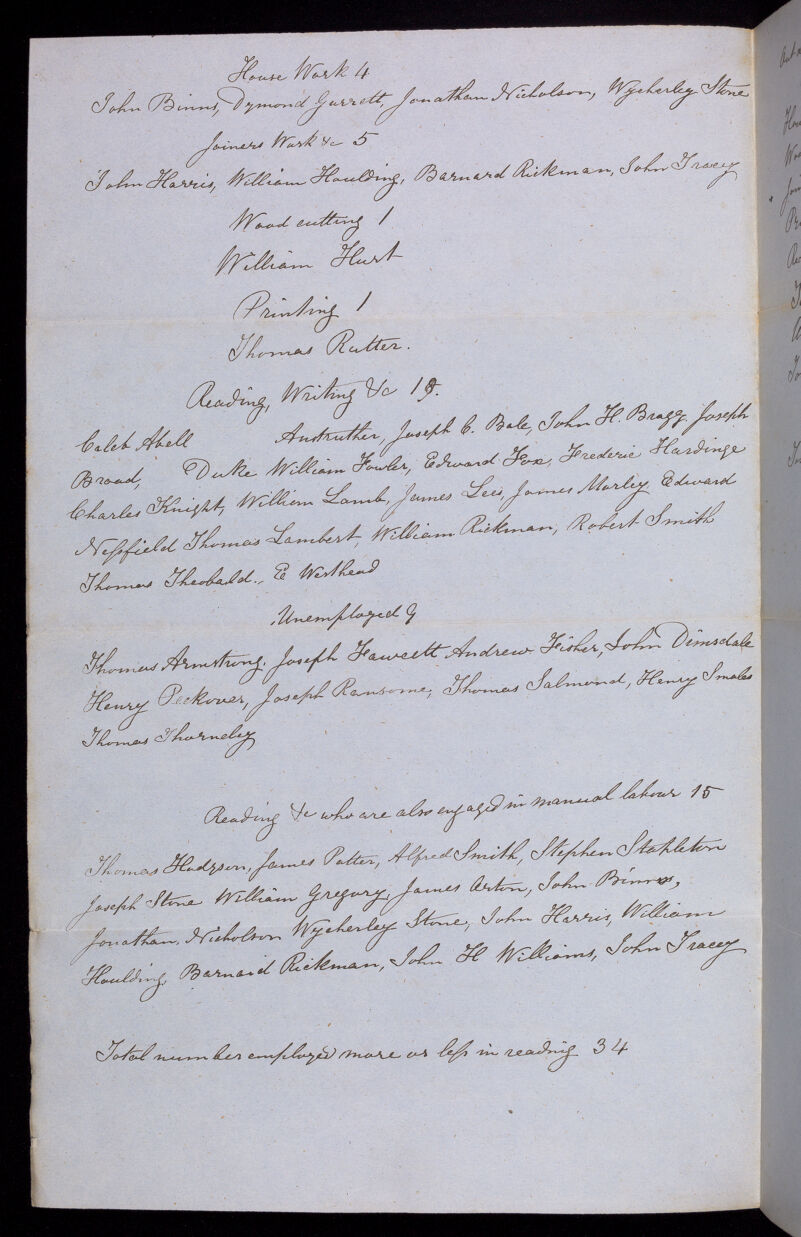 House Work 4
John Binns, Dymond Garrett, Jonathan Nicholson, Wycherley Stone
Joiners Work &c 5
John Harris, William Houlding, Barnard Rickman, John Tracey
Wood cutting 1
William Hurt
Printing 1
Thomas Rutter.
Reading, Writing &c 19.
Caleb Abell Anstruther, Joseph C. Bale, John H. Bragg, Joseph
Broad, Duke William Fowler, Edward Fox, Frederic Hardinge
Charles Knight, William Lamb, James Lees, James Morley, Edward
Nessfield Thomas Lambert, William Rickman, Robert Smith
Thomas Theobald., E Westhead
Unemployed 9
Thomas Armstrong, Joseph Fawcett Andrew Fisher, John Dimsdale
Henry Peckover, Joseph Ransome, Thomas Salmond, Henry Smales
Thomas Thorneley
Reading &c who are also engaged in manual labour 15
Thomas Hodgson, James Potter, Alfred Smith, Stephen Stapleton
Joseph Stone William Gregory, James Arton, John Binns,
Jonathan Nicholson Wycherley Stone, John Harris, William
Houlding, Barnard Rickman, John H Williams, John Tracey
Total number employed more or less in reading 34